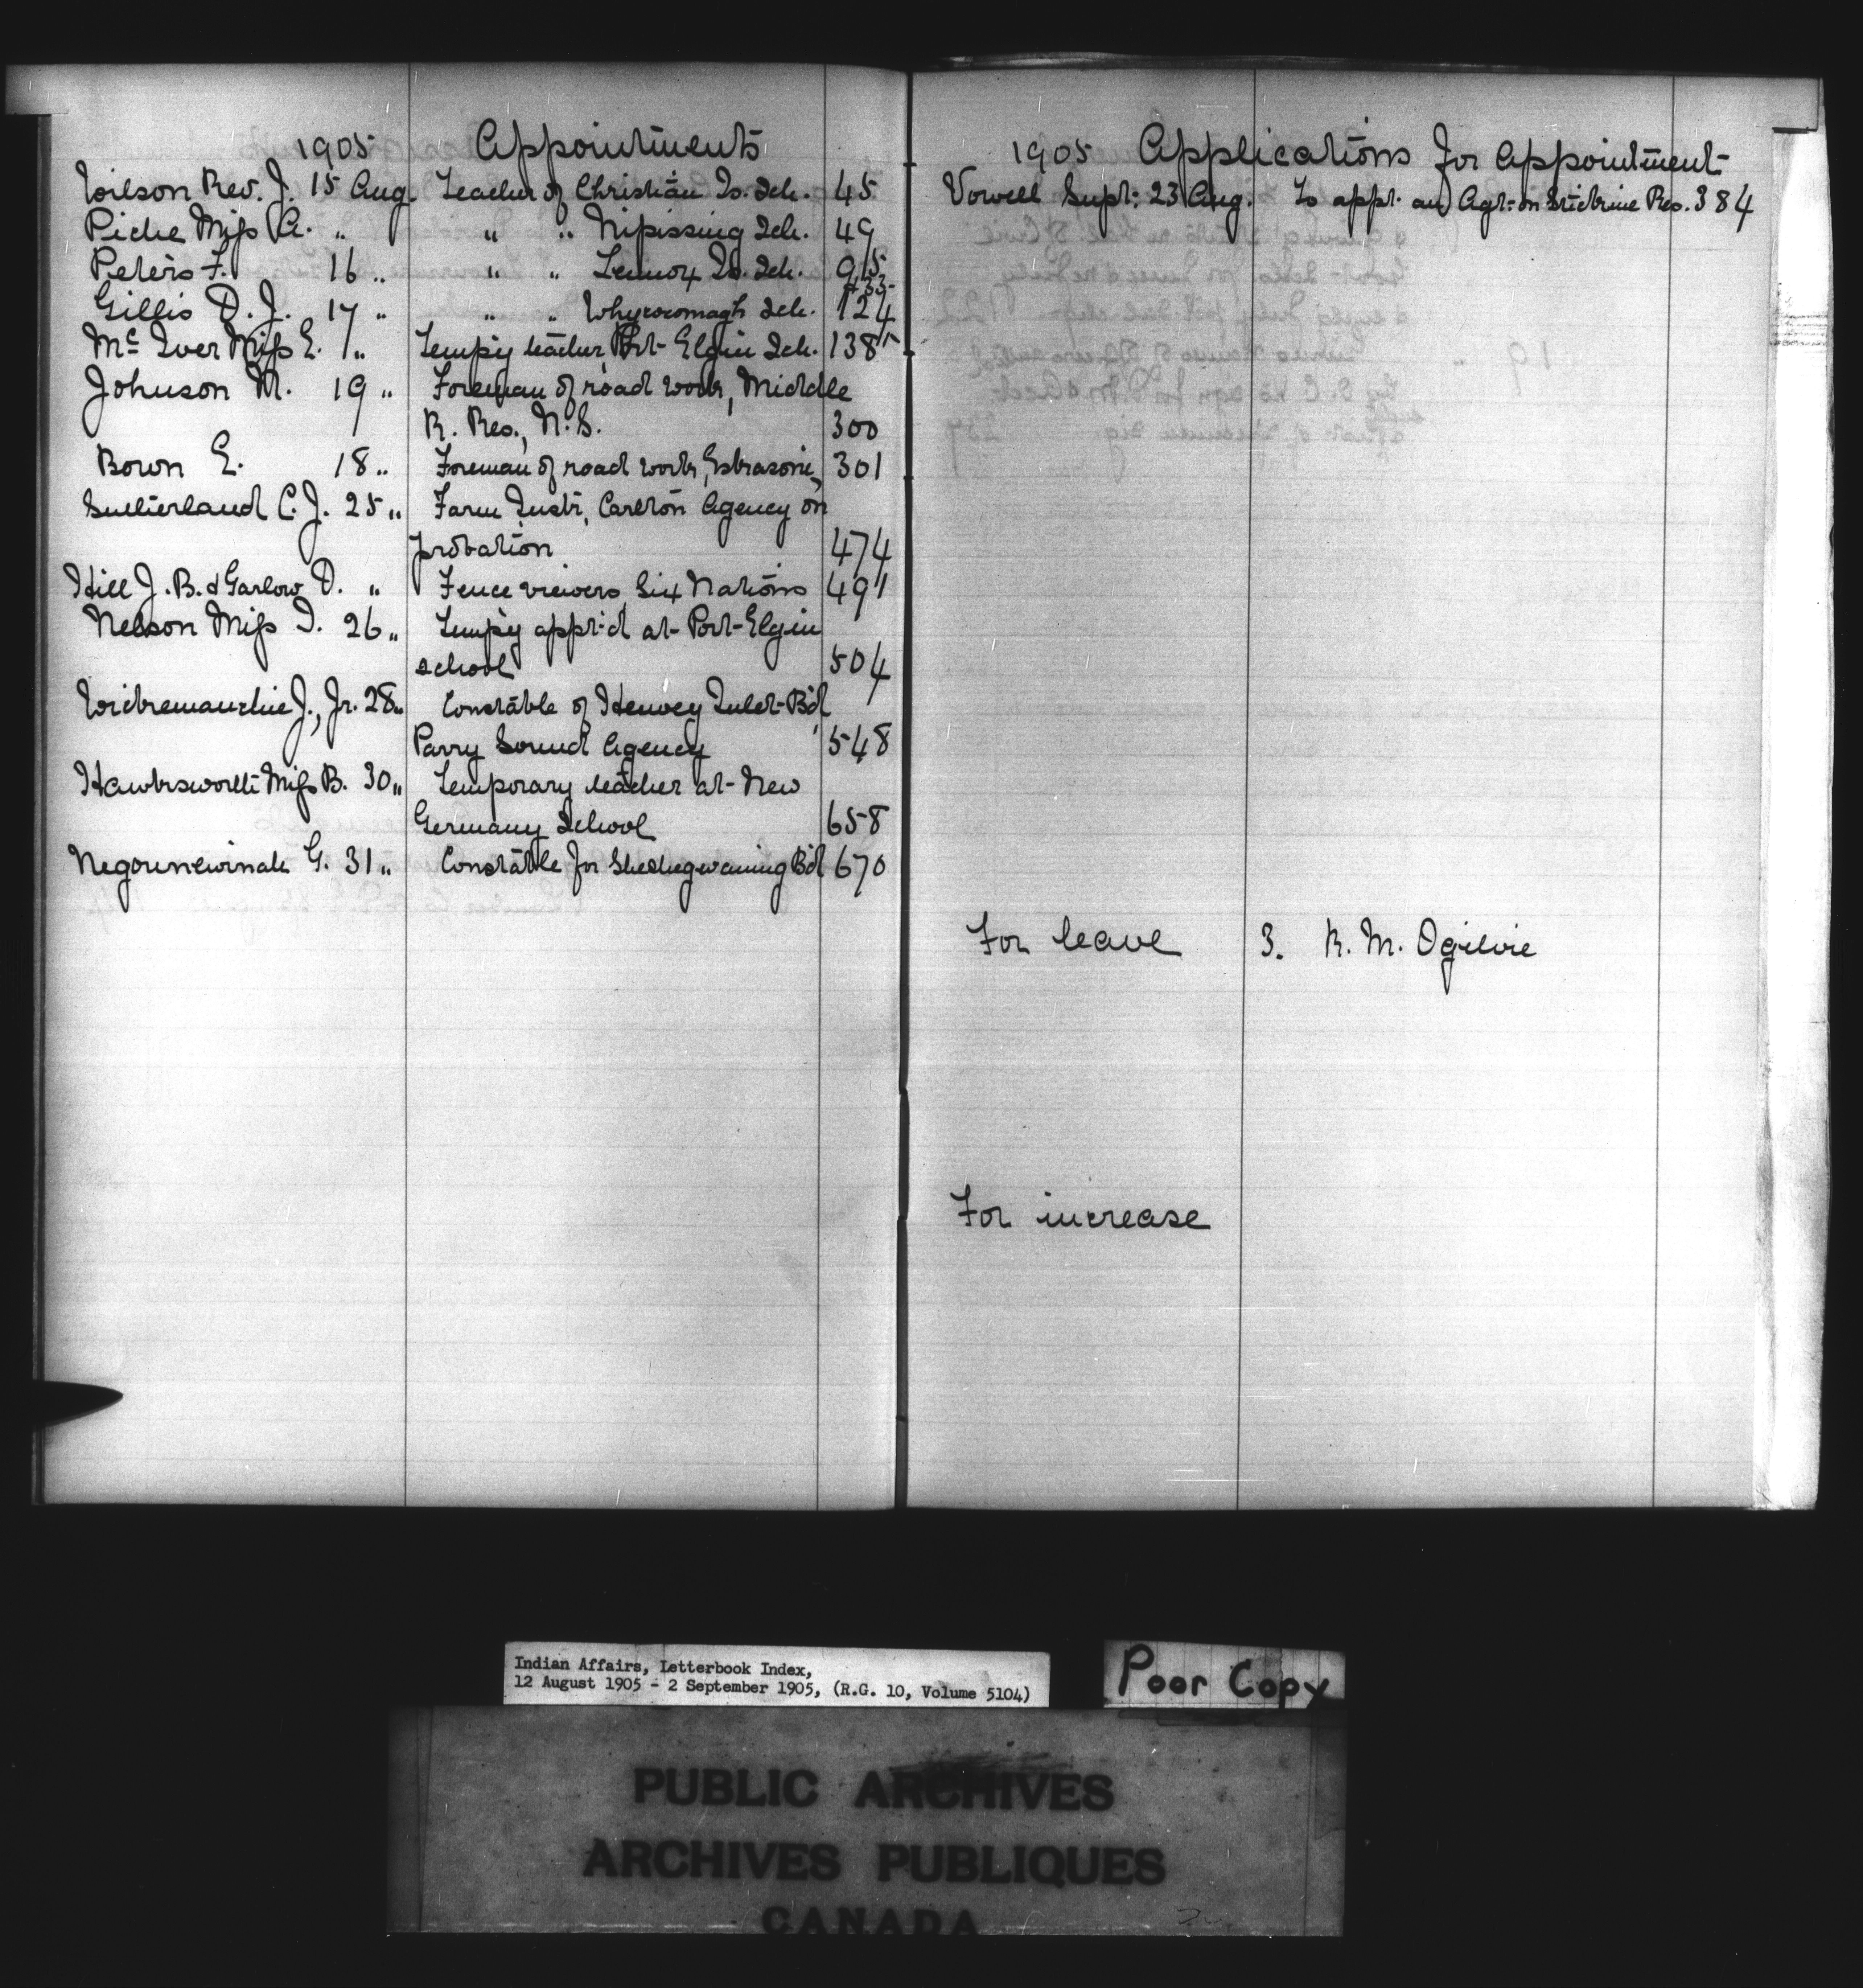 1905 Appointments
Wilson Rev. J. 15 Aug. Teacher of Christian Is. Sch. 45
Piche Miss A. " " " Nipissing Sch. 49
Peters F. 16 " " " Lennox Is. Sch. 95
+33-
Gillis D. J. 17 " " " Whycocomagh Sch. 124
McIver Miss E. " Temp'y teacher Port Elgin Sch. 138
Johnson M. 19 " Foreman of road work, Middle
R. Res., N.S. 300
Bown E. 18 " Foreman of road work, Eskasoni, 301
Sutherland C. J. 25 " Farm Instr, Carlton Agency on
probation 474
Hill J. B. & Garlow D. " Fence viewers Six Nations 491
Nelson Miss I. 26 " Temp'y appt'd at Port Elgin
school 504
J., Jr. 28 " Constable of Henvey Inlet B'd
Parry Sound Agency 548
Hawksworth Miss B. 30 " Temporary teacher at New
Germany School 658
Negounewinah G. 31 " Constable for Sheshegwaning B'd 670
1905 Applications for Appointment
Vowell Supt: 23 Aug. To appt. an Agt. on Stickine Res. 384
For leave 3. R. M. Ogilvie
For increase
Indian Affairs, Letterbook Index,
12 August 1905 - 2 September 1905, (R.G. 10, Volume 5104)
Poor Copy
PUBLIC ARCHIVES
ARCHIVES PUBLIQUES
CANADA